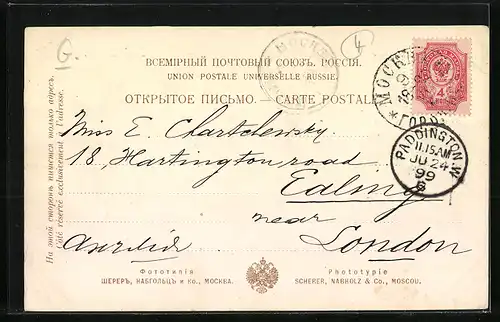 G.
4
МОСКВА
ВСЕМІРНЫЙ ПОЧТОВЫЙ СОЮЗЪ. РОССІЯ.
UNION POSTALE UNIVERSELLE. RUSSIE.
ОТКРЫТОЕ ПИСЬМО. — CARTE POSTALE
4
PADDINGTON. W.
11.15 AM
JU 24
99
Miss E. Chartelewsky
18, Hartington road
Ealing
near
Англія London
На этой сторонѣ пишется только адресъ.
Côté réservé exclusivement à l'adresse.
Фототипія
ШЕРЕРЪ, НАБГОЛЬЦЪ и Ко., МОСКВА.
Phototypie
SCHERER, NABHOLZ & Co., MOSCOU.